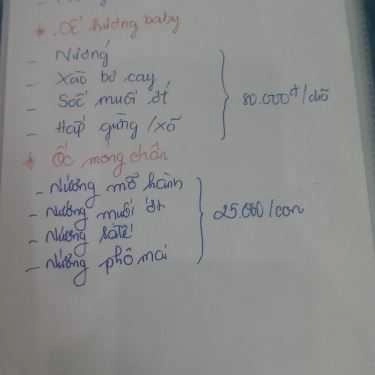 * ỐC hương baby
- Nướng
- Xào bơ cay
- Sốc muối ớt
- Hấp gừng /xả
80.000đ/dĩa
* Ốc móng chân
- Nướng mỡ hành
- Nướng muối ớt
- Nướng satế
- Nướng phô mai
25.000/con